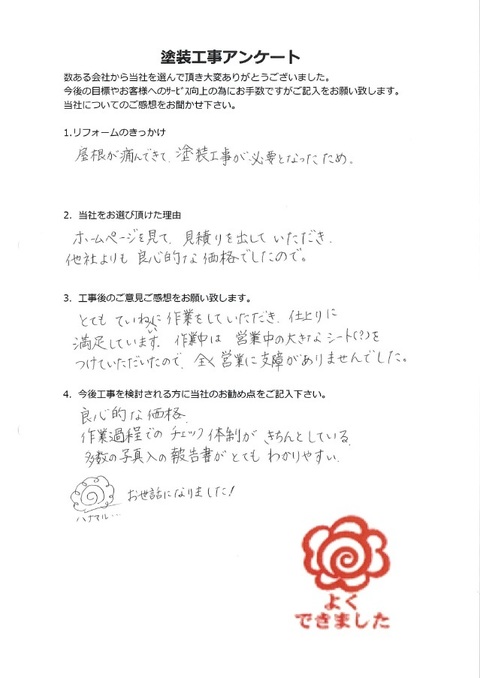 塗装工事アンケート
数ある会社から当社を選んで頂き大変ありがとうございました。
今後の目標やお客様へのサービス向上の為にお手数ですがご記入をお願い致します。
当社についてのご感想をお聞かせ下さい。
1.リフォームのきっかけ
屋根が痛んできて、塗装工事が必要となったため。
2．当社をお選び頂けた理由
ホームページを見て、見積りを出していただき、
他社よりも良心的な価格でしたので。
3．工事後のご意見ご感想をお願い致します。
とてもていねいに作業をしていただき、仕上りに
満足しています。作業中は営業中の大きなシート(?)を
つけていただいたので、全く営業に支障がありませんでした。
4．今後工事を検討される方に当社のお勧め点をご記入下さい。
良心的な価格
作業過程でのチェック体制がきちんとしている
多数の写真入の報告書がとてもわかりやすい。
お世話になりました！
ハナマル…
よく
できました